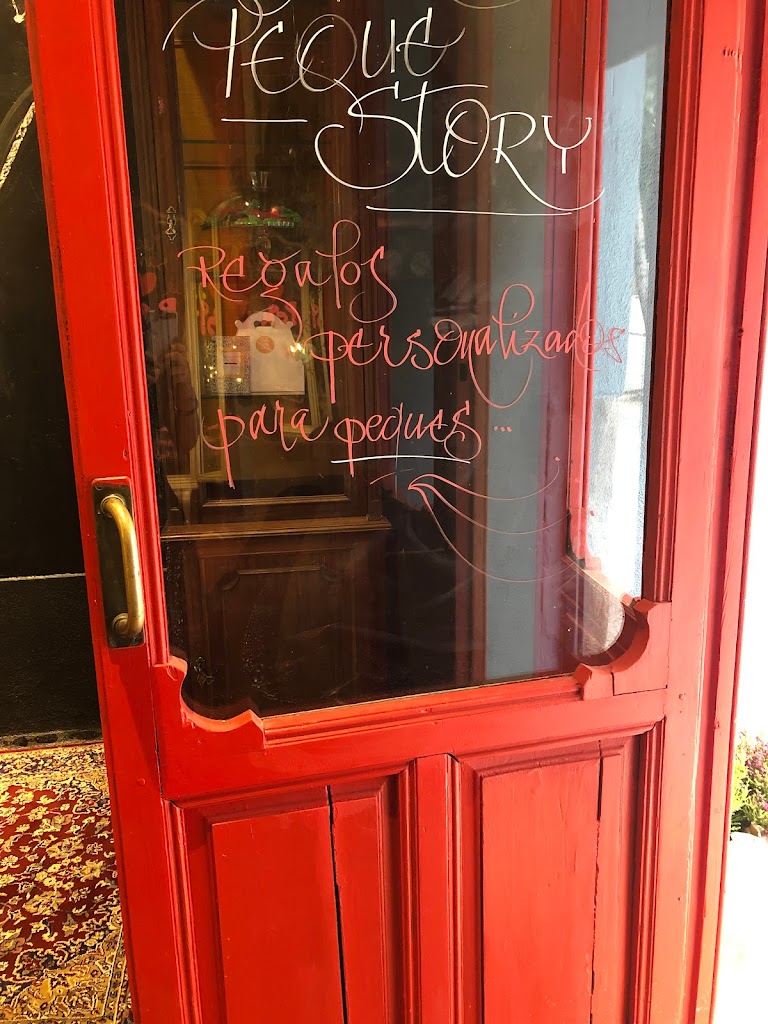 PEQUE
STORY
Regalos
personalizados
para peques...